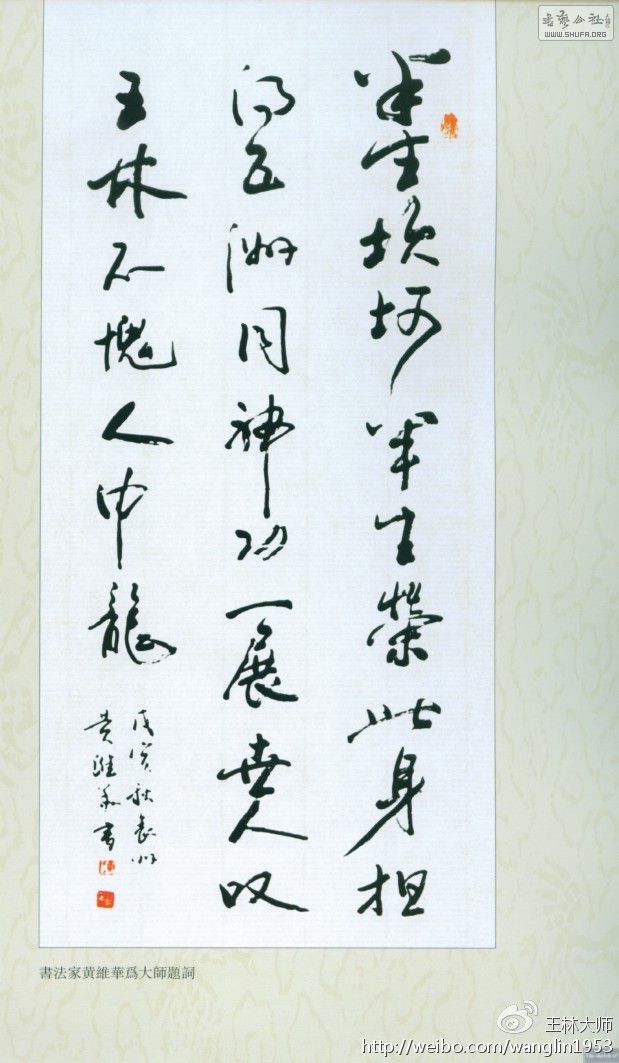 書藝公社
WWW.SHUFA.ORG
半生坎坷半生榮此身担
得五洲同神功一展世人叹
王林不愧人中龍
戊寅秋袁州
黄維華書
書法家黄維華爲大師題詞
王林大师
http://weibo.com/wanglin1953
The sketch of